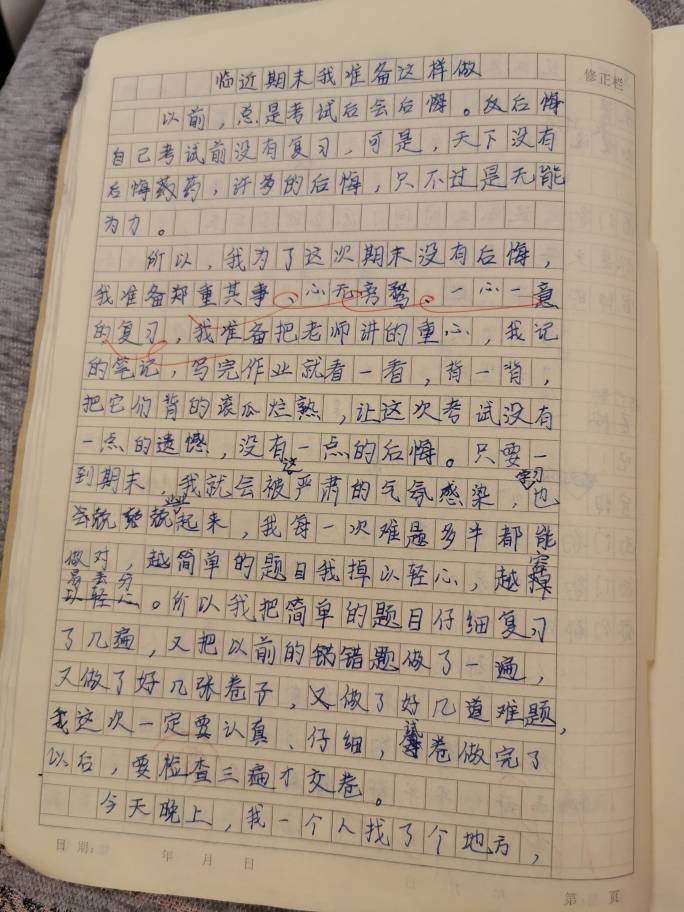 临近期末我准备这样做
修正栏
以前，总是考试后会后悔。反后悔
自己考试前没有复习，可是，天下没有
后悔药，许多的后悔，只不过是无能
为力。
所以，我为了这次期末没有后悔，
我准备郑重其事、心无旁骛、一心一意
的复习，我准备把老师讲的重心，我记
的笔记，写完作业就看一看，背一背，
把它们背的滚瓜烂熟，让这次考试没有
一点的遗憾，没有一点的后悔。只要一
到期末，我就会被这严肃的气氛感染，学习也
会兢兢业业起来，我每一次难题多半都能
做对，越简单的题目我掉以轻心，越容
易丢分。所以我把简单的题目仔细复习
了几遍，又把以前的错题做了一遍，
又做了好几张卷子，又做了好几道难题，
我这次一定要认真、仔细，试卷做完了
以后，要检查三遍才交卷。
今天晚上，我一个人找了个地方，
日期： 年 月 日
第 页